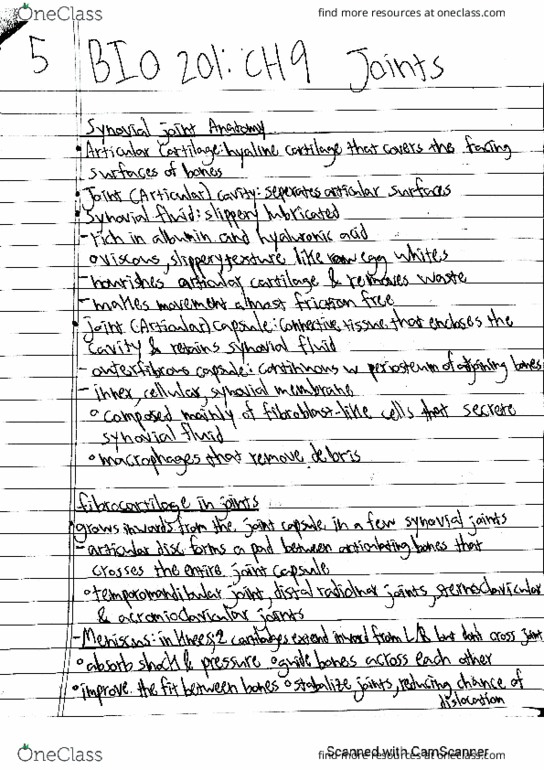 OneClass
find more resources at oneclass.com
5 BIO 201: CH9 Joints
Synovial joint Anatomy
• Articular Cartilage: hyaline cartilage that covers the facing
surfaces of bones
• Joint (Articular) cavity: seperates articular surfaces
• Synovial fluid: slippery lubricated
- rich in albumin and hyaluronic acid
o viscous, slippery texture like raw egg whites
- nourishes articular cartilage & removes waste
- makes movement almost friction free
• Joint (Articular) capsule: connective tissue that encloses the
cavity & retains synovial fluid
- outer fibrous capsule: continuous w periosteum of adjoining bones
- inner, cellular, synovial membrane
o composed mainly of fibroblast-like cells that secrete
synovial fluid
o macrophages that remove debris
fibrocartilage in joints
grows inwards from the joint capsule in a few synovial joints
- articular disc forms a pad between articulating bones that
crosses the entire joint capsule
o temporomandibular joint, distal radioulnar joints, sternoclavicular
& acromioclavicular joints
- Meniscus: in knees, 2 cartilages extend inward from L/R but dont cross joint
o absorb shock & pressure o guide bones across each other
o improve the fit between bones o stabalize joints, reducing chance of
dislocation
Scanned with CamScanner
OneClass
find more resources at oneclass.com